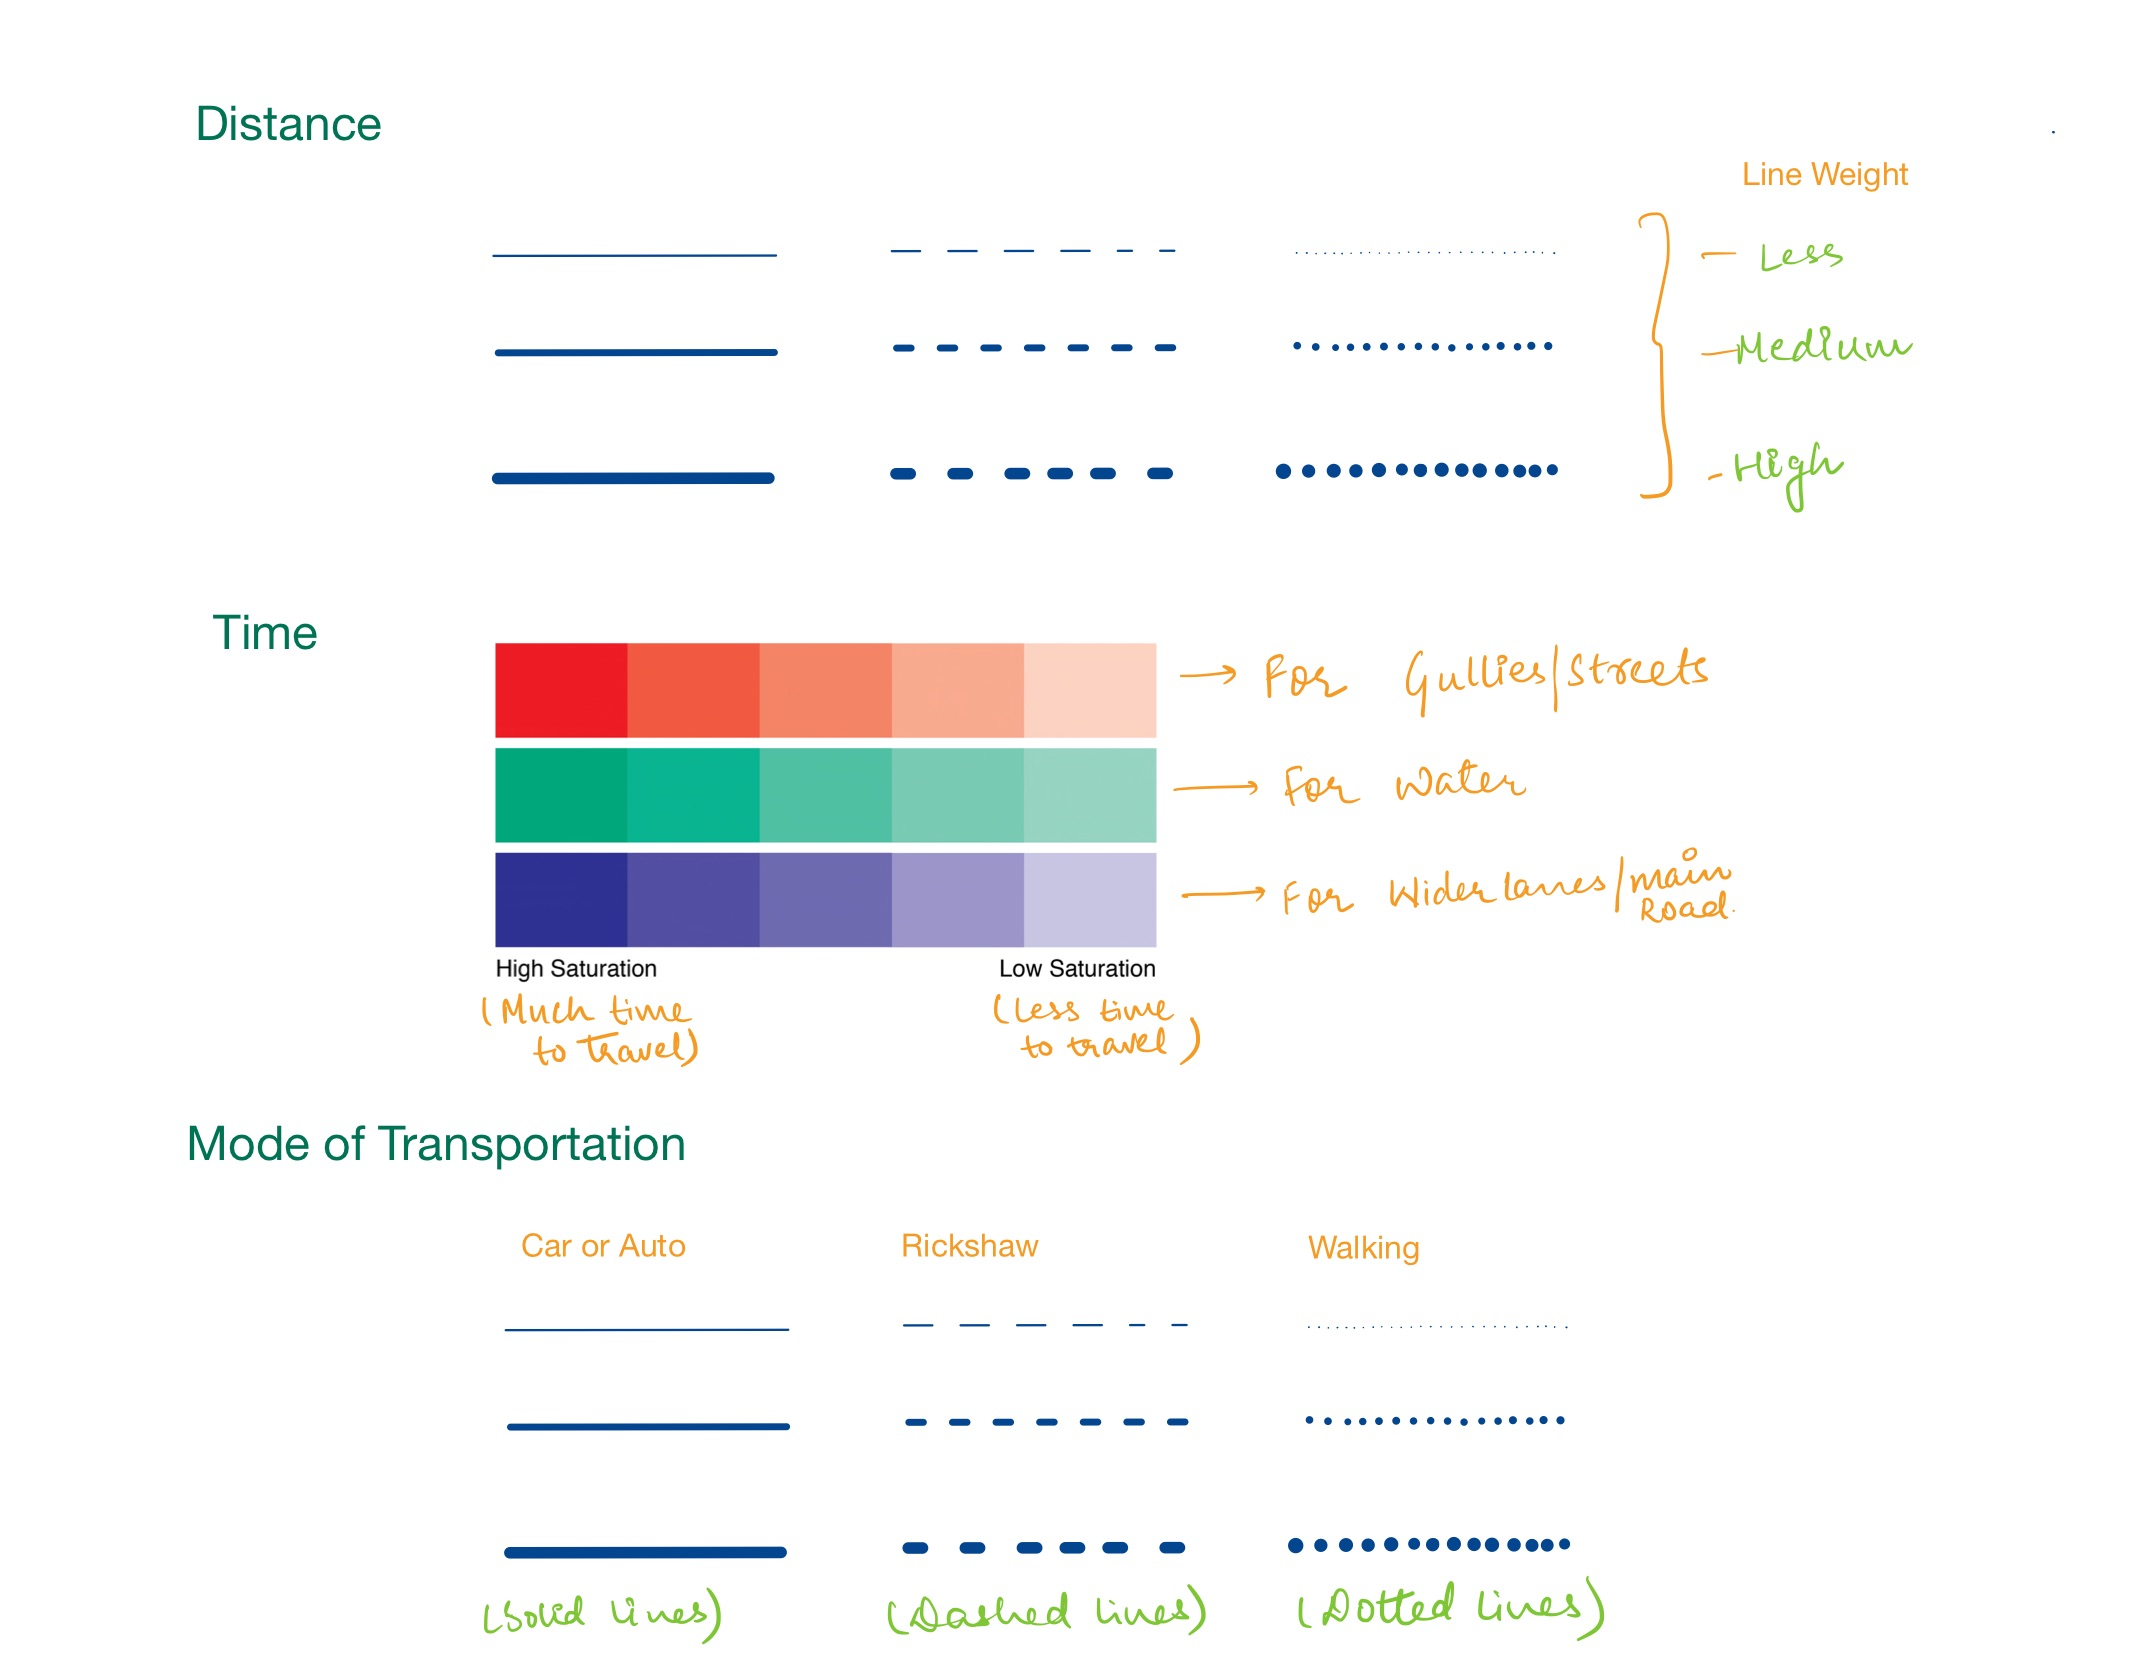 Distance
Line Weight
- Less
- Medium
- High
Time
→ For Gullies/streets
→ For water
→ For Widerlanes/main
Road.
High Saturation
Low Saturation
(Much time
to travel)
(less time
to travel)
Mode of Transportation
Car or Auto
Rickshaw
Walking
(Solid lines)
(Dashed lines)
(Dotted lines)